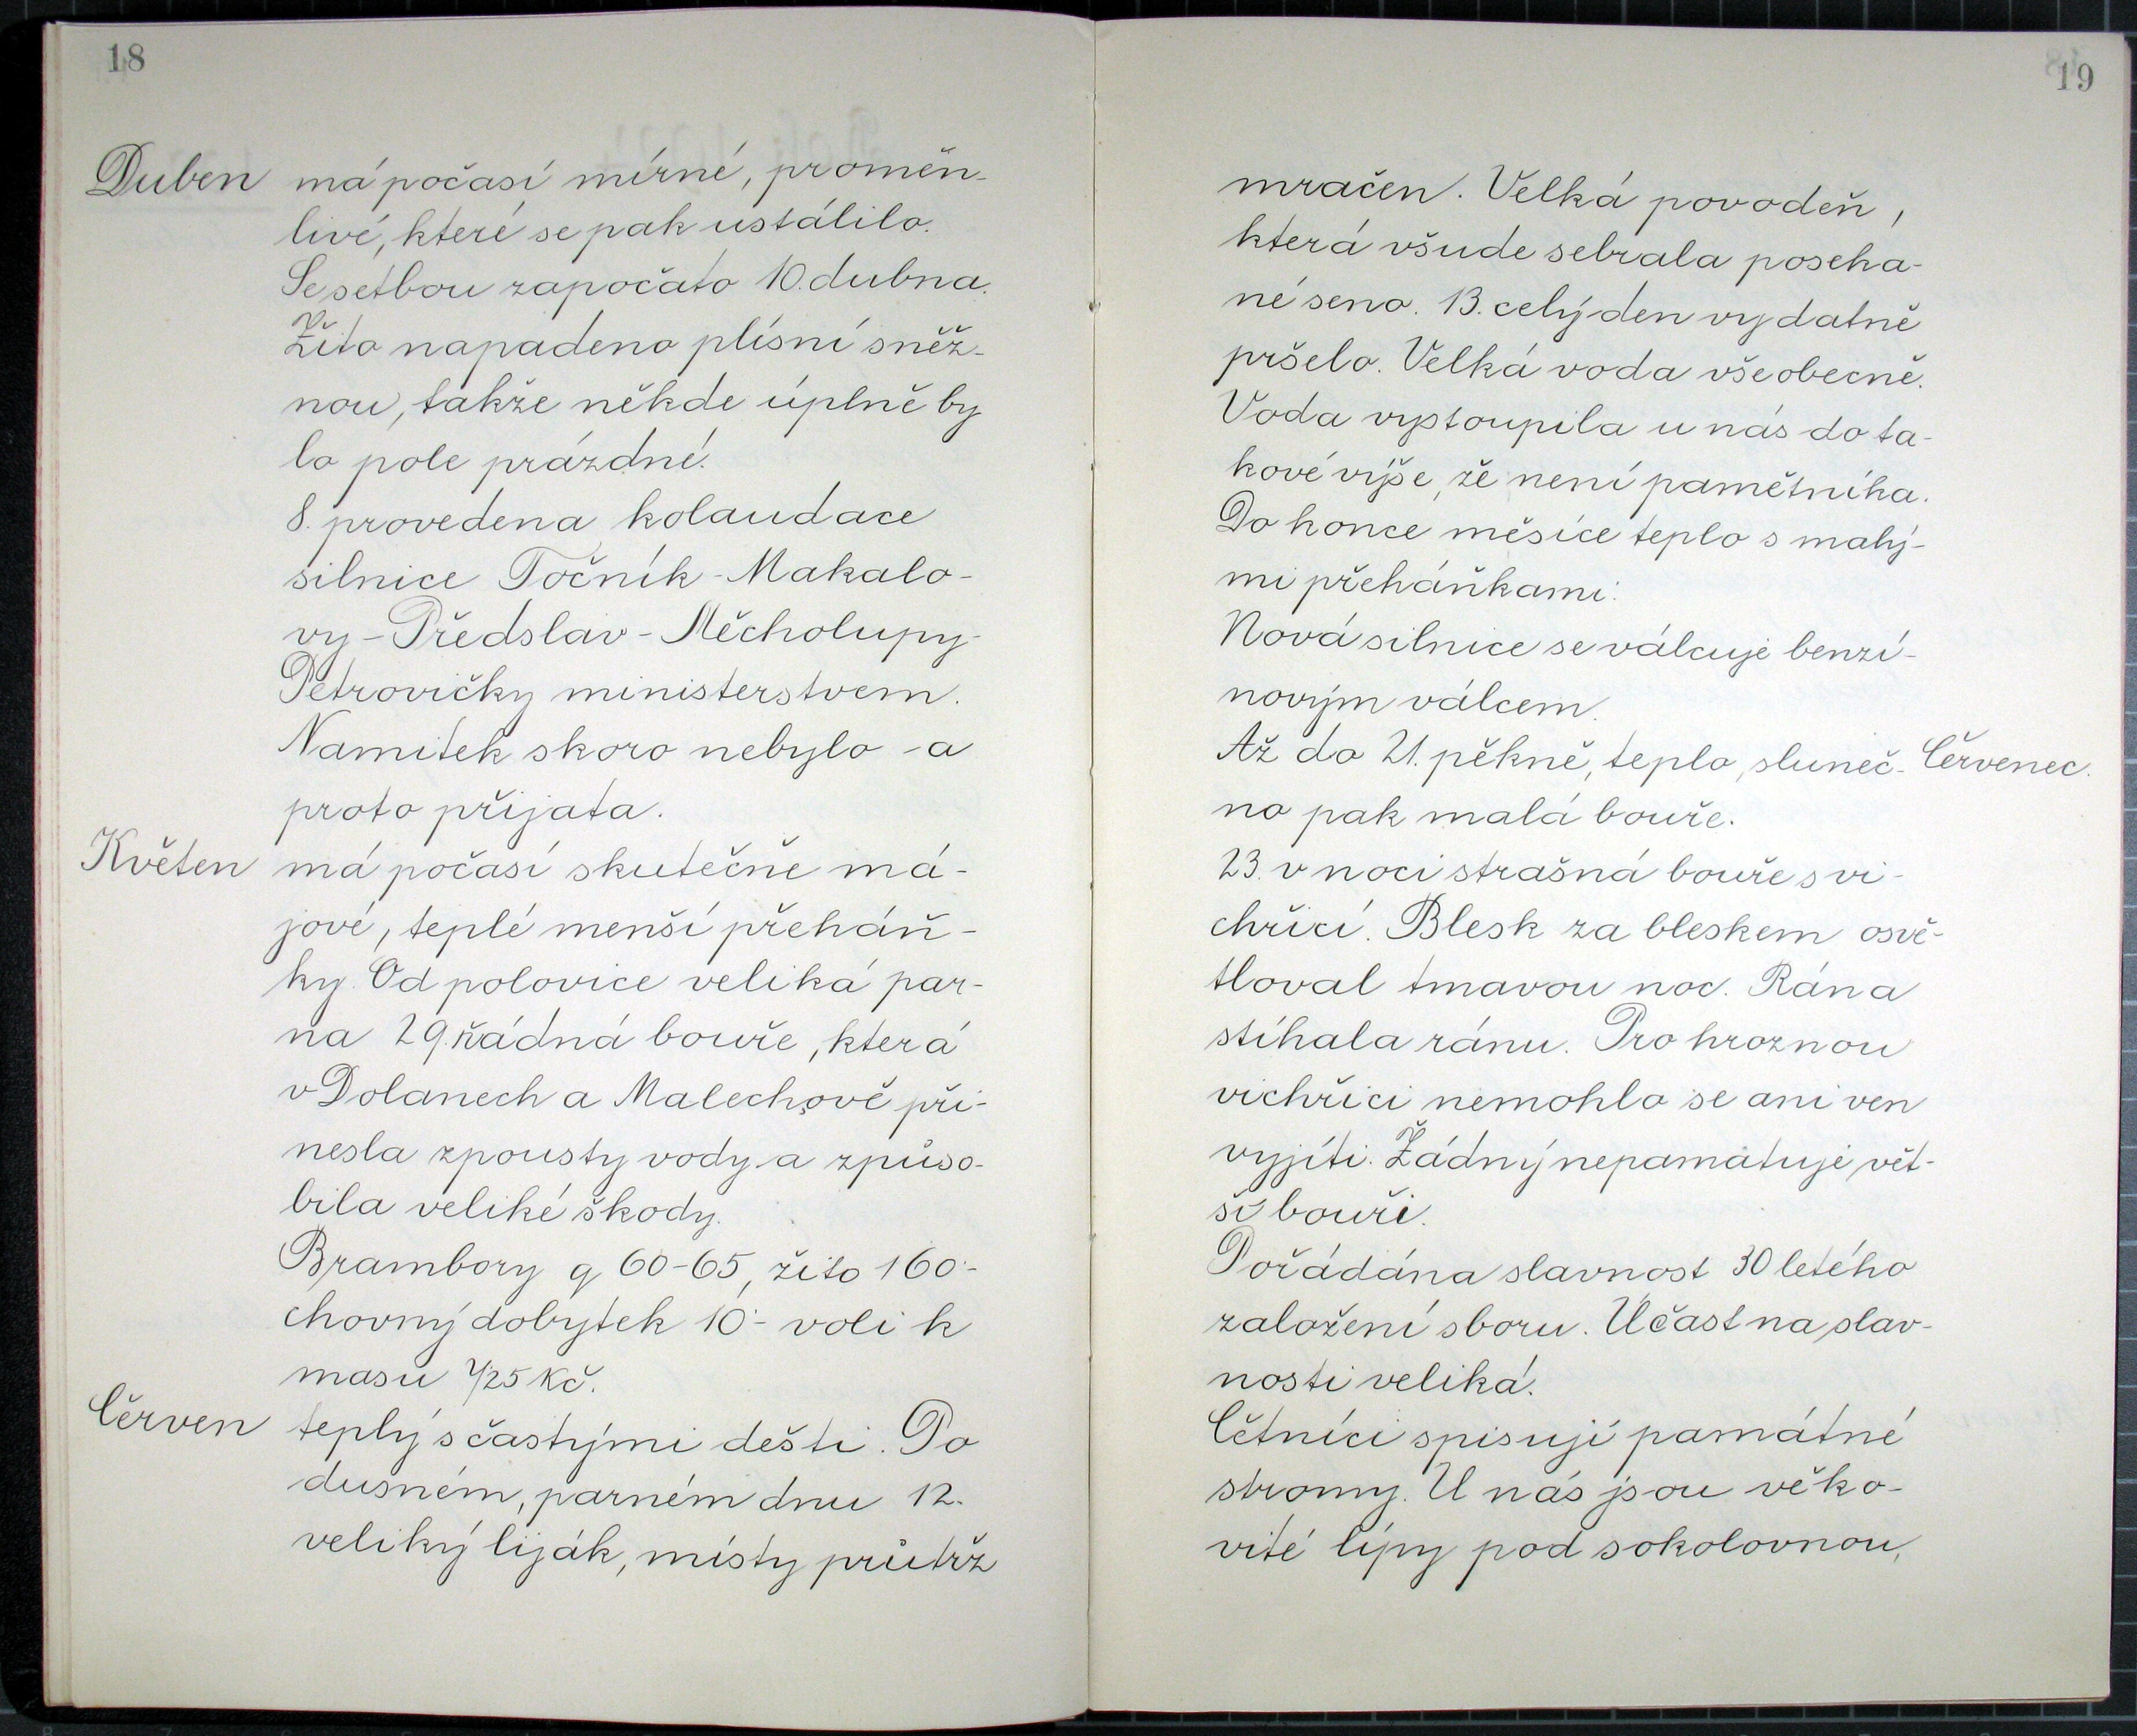 18
Duben má počasí mírné, proměn-
livé, které se pak ustálilo.
Se setbou započato 10. dubna.
Žito napadeno plísní sněž-
nou, takže někde úplně by
lo pole prázdné.
8. provedena kolaudace
silnice Točník - Makalo-
vy - Předslav - Měcholupy -
Petrovičky ministerstvem.
Namitek skoro nebylo - a
proto přijata.
Květen má počasí skutečně má-
jové, teplé menší přeháň-
ky. Od polovice veliká par-
na 29. řádná bouře, která
v Dolanech a Malechově při-
nesla spousty vody a způso-
bila veliké škody.
Brambory q 60-65, žito 160·-
chovný dobytek 10·- voli k
masu 4/25 Kč.
Červen teplý s častými dešti. Po
dusném, parném dnu 12.
veliký liják, místy průtrž
19
mračen. Velká povodeň,
která všude sebrala poseka-
né seno. 13. celý den vydatně
pršelo. Velká voda všeobecně.
Voda vystoupila u nás do ta-
kové výše, že není pamětníka.
Do konce měsíce teplo s malý-
mi přeháňkami.
Nová silnice se válcuje benzí-
novým válcem.
Až do 21. pěkně, teplo, sluneč- Červenec.
no pak malá bouře.
23. v noci strašná bouře s vi-
chřicí. Blesk za bleskem osvě-
tloval tmavou noc. Rána
stíhala ránu. Pro hroznou
vichřici nemohlo se ani ven
vyjíti. Žádný nepamatuje vět-
ší bouři.
Pořádána slavnost 30 letého
založení sboru. Účast na slav-
nosti veliká.
Četníci spisují památné
stromy. U nás jsou věko-
vité lípy pod sokolovnou,